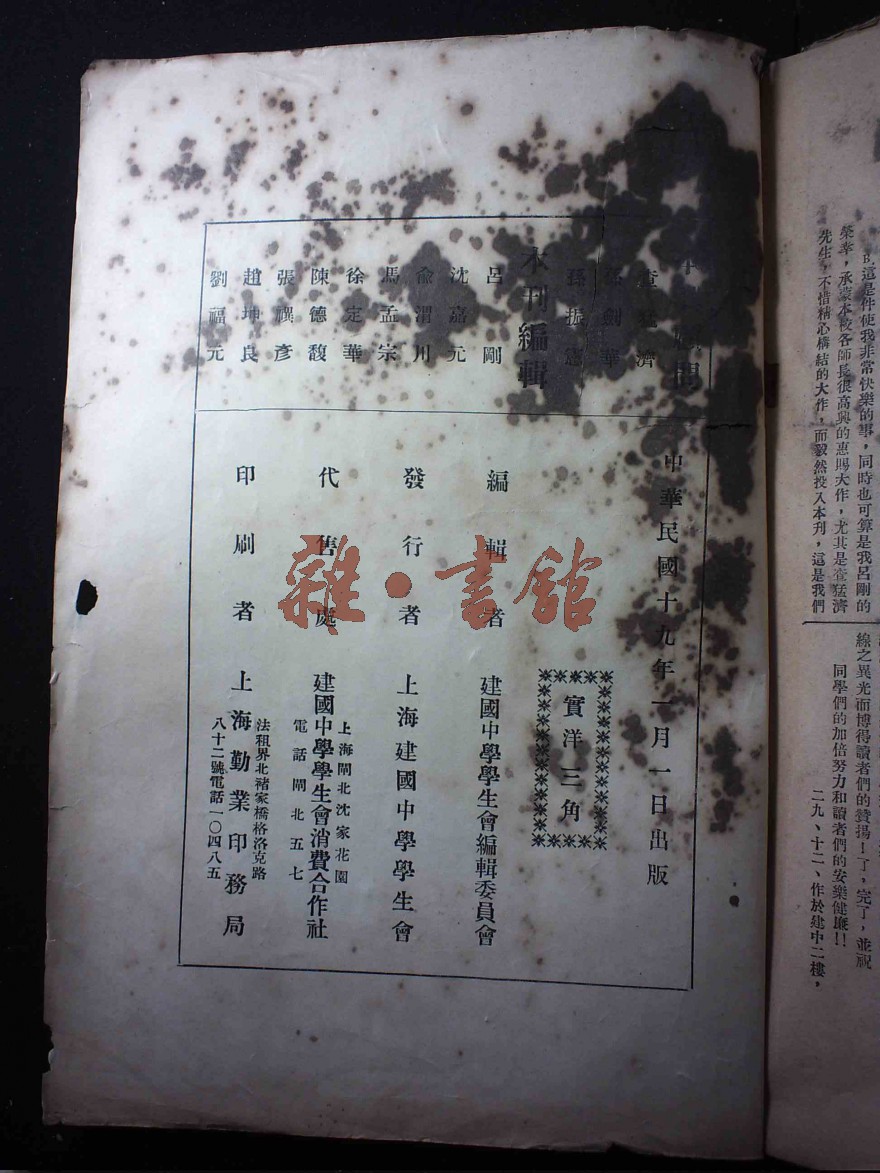 本刊編輯
孫振憲
呂剛
沈嘉元
俞渭川
馬孟宗
徐定華
陳德馥
張禩彥
趙坤良
劉福元
中華民國十九年一月一日出版
實洋三角
編輯者 建國中學學生會編輯委員會
發行者 上海建國中學學生會
代售處 建國中學學生會消費合作社
上海閘北沈家花園
電話閘北五七
印刷者 上海勤業印務局
法租界北褚家橋格洛克路
八十二號電話一〇四八五
雜·書館
這是件使我非常快樂的事,同時也可算是我呂剛的
榮幸,承蒙本校各師長很高興的惠賜大作,尤其是查猛濟
先生,不惜精心構結的大作,而毅然投入本刋,這是我們
線之異光而博得讀者們的贊揚!了,完了,並祝
同學們的加倍努力和讀者們的安樂健康!!
二九、十二、作於建中二樓,